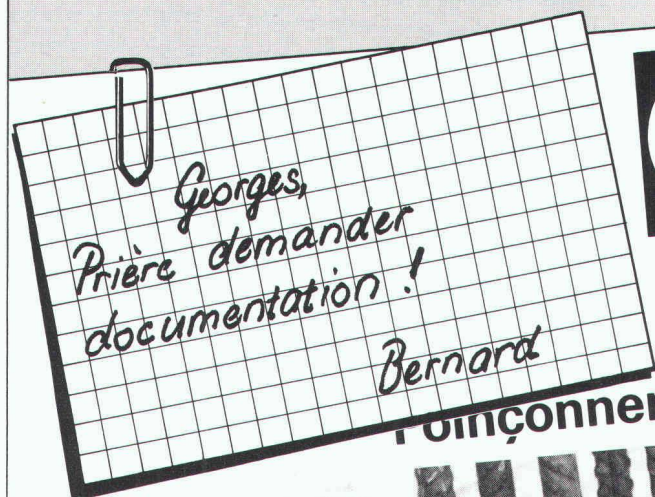 Georges,
Prière demander
documentation !
Bernard